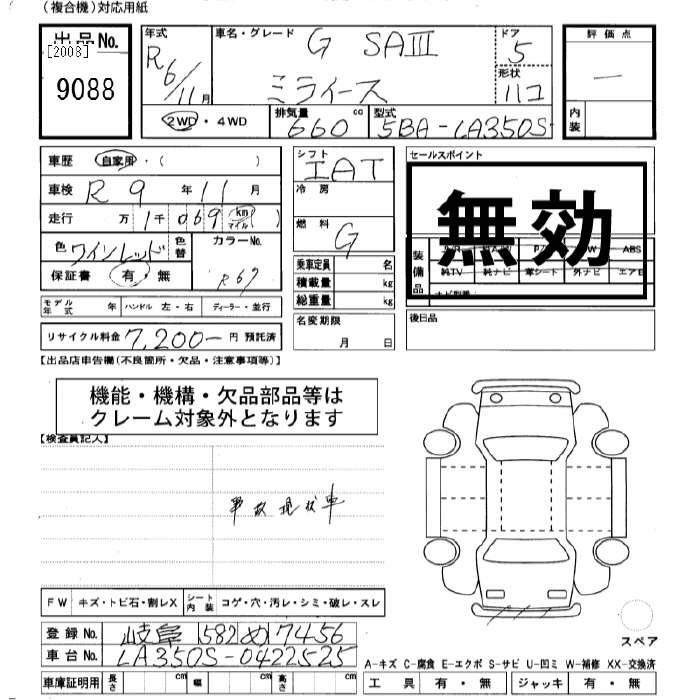 (複合機)対応用紙
出品No.
[2008]
9088
年式 R6/11月
車名・グレード G SAⅢ
ミライース
ドア 5
形状 ハコ
評価点 —
内装
2WD・4WD
排気量 660 cc
型式 5BA-LA350S
車歴 自家用・( )
車検 R 9 年 11 月
走行 万 1千 069 (km マイル)
色 ワインレッド 色替
カラーNo. R67
保証書 有・無
モデル年式 年 ハンドル 左・右 ディーラー・並行
リサイクル料金 7,200- 円 預託済
シフト IAT
冷房
燃料 G
乗車定員 名
積載量 kg
総重量 kg
名変期限
月 日
セールスポイント
無効
装備品
ABS
純TV 純ナビ 革シート 外ナビ エアB
後日品
【出品店申告欄(不良箇所・欠品・注意事項等)】
機能・機構・欠品部品等は
クレーム対象外となります
【検査員記入】
事故現状車
FW キズ・トビ石・割レX シート内装 コゲ・穴・汚レ・シミ・破レ・スレ
登録No. 岐阜 582 め 7456
車台No. LA350S-0422525
車庫証明用 長さ cm 幅 cm 高さ cm
スペア
A-キズ C-腐食 E-エクボ S-サビ U-凹ミ W-補修 XX-交換済
工具 有・無 ジャッキ 有・無